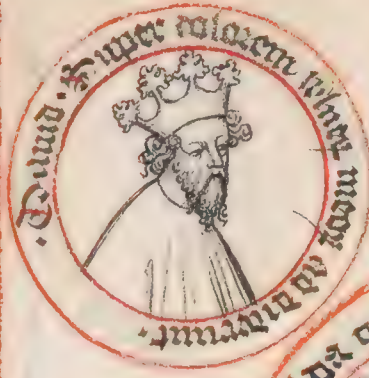 ·Dauid· Super dolorem wlneꝝ meoꝝ addiderunt·